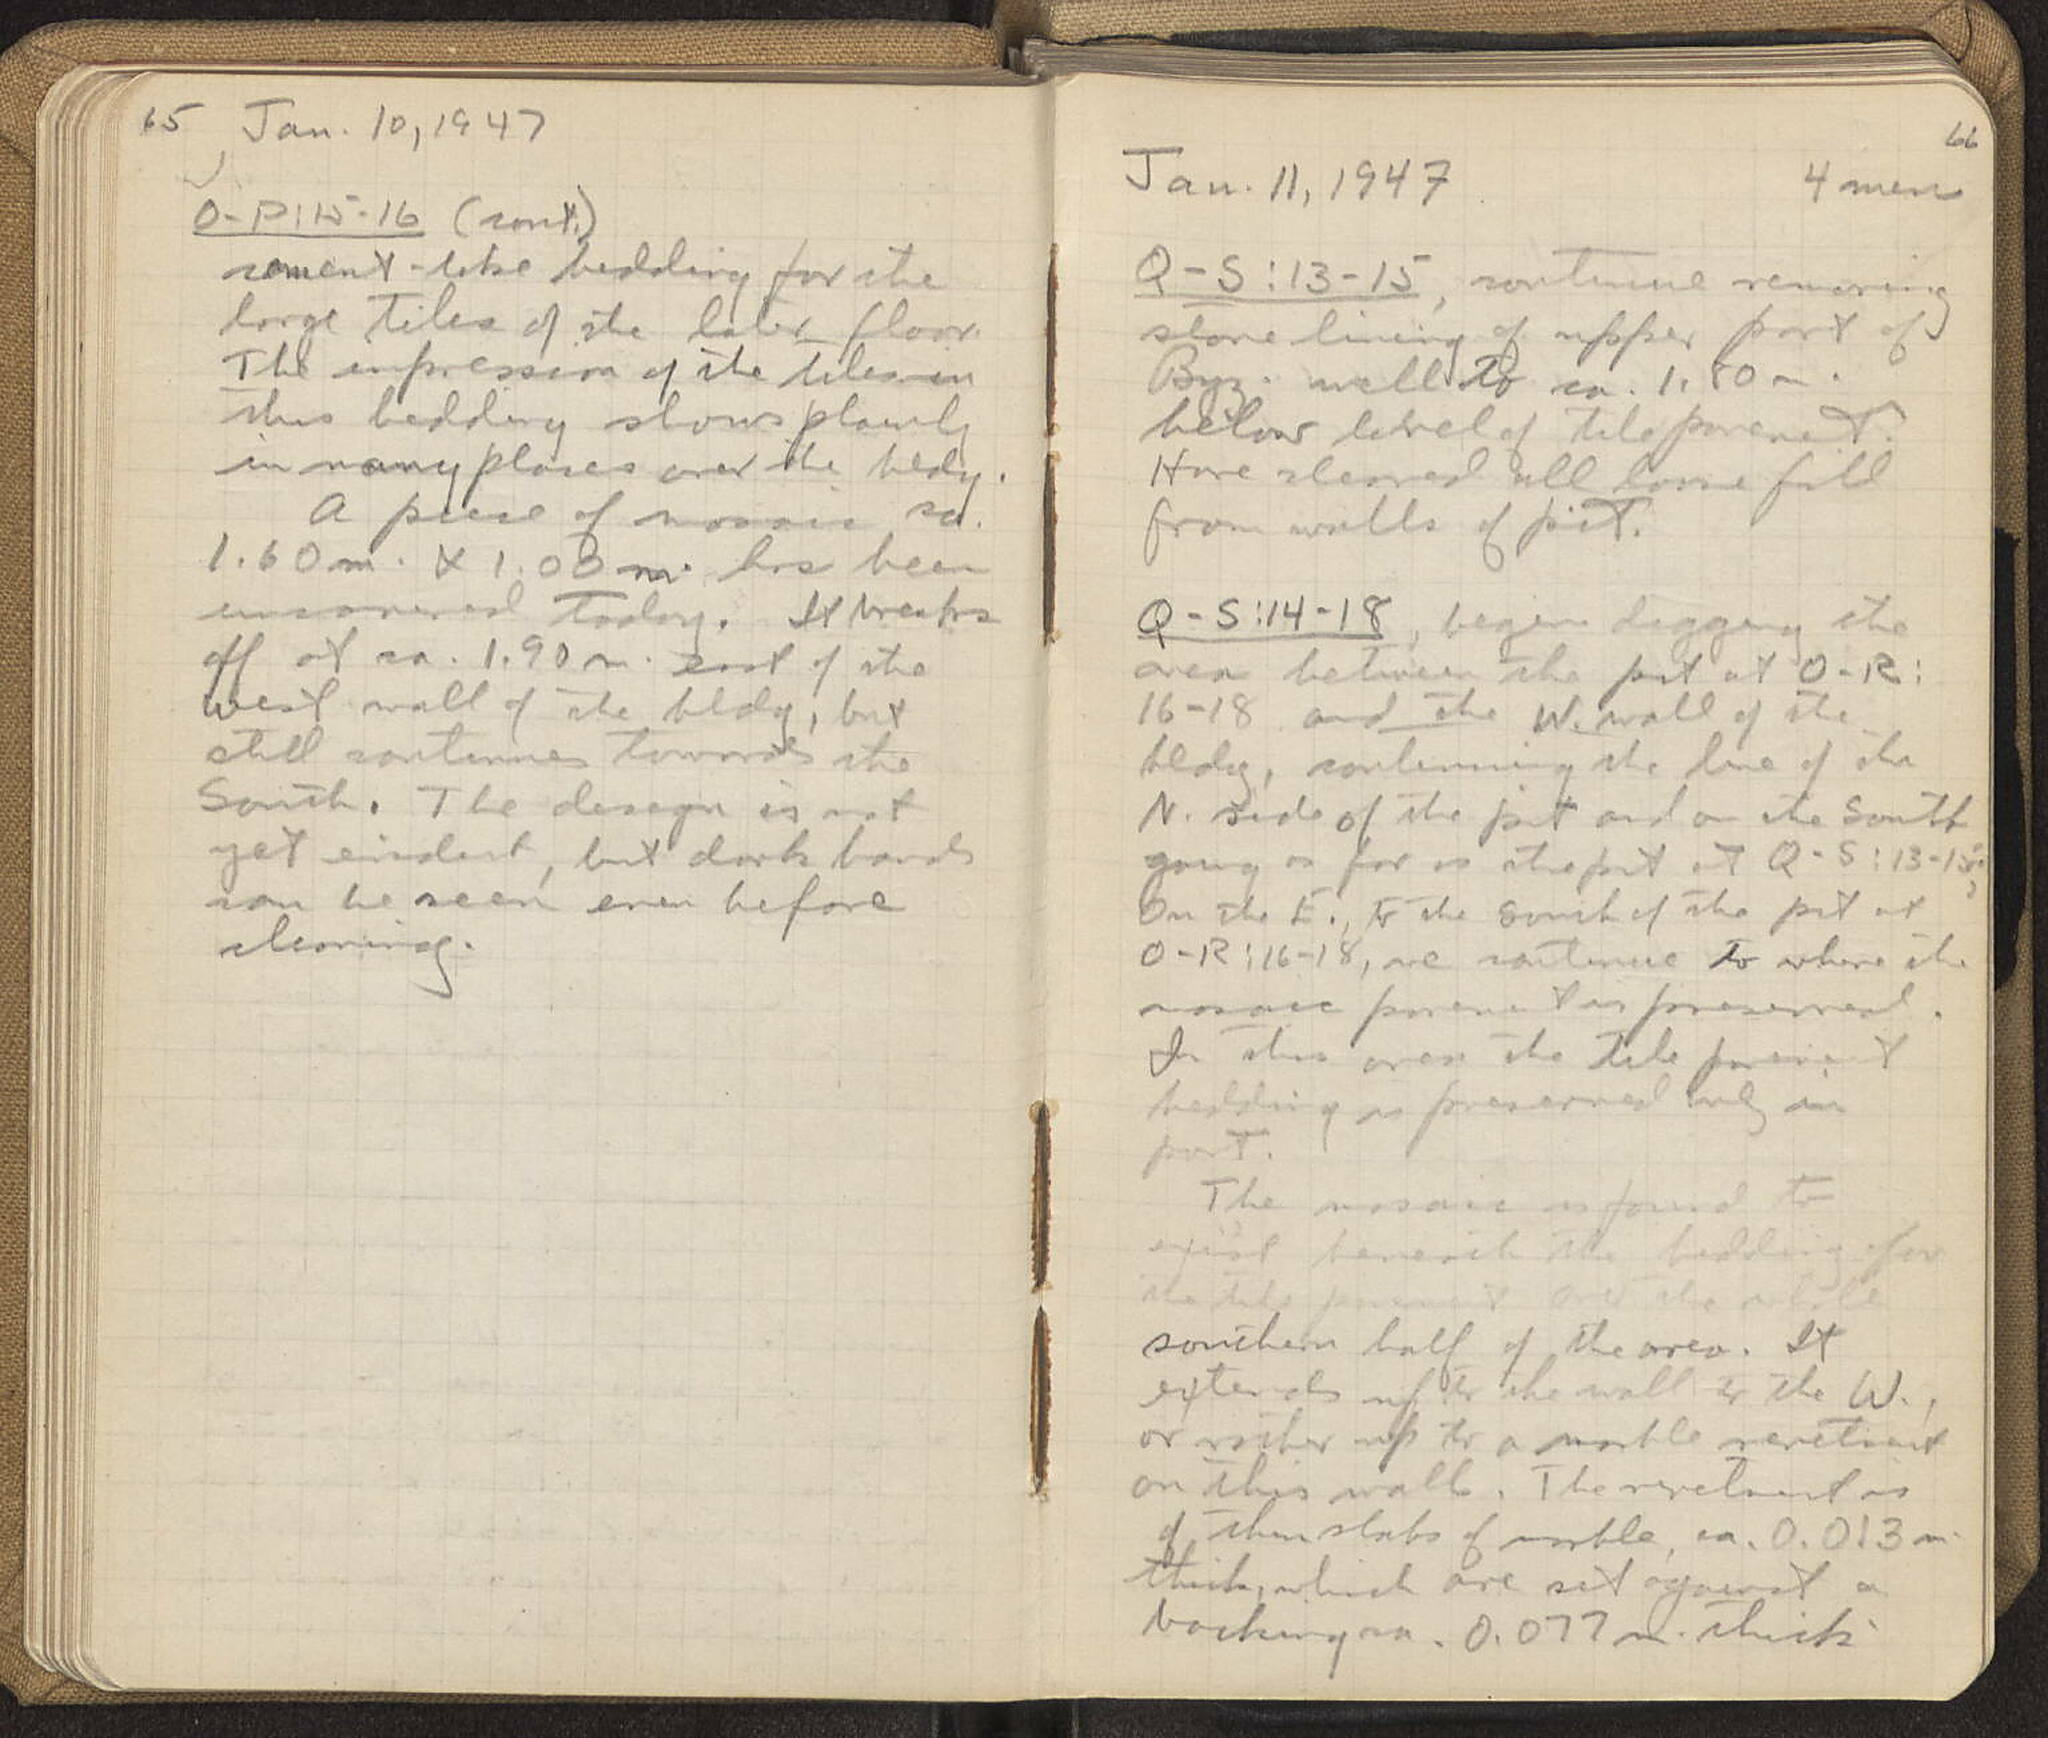 65 Jan. 10, 1947
O-P:15-16 (cont.)
cement-like bedding for the
large tiles of the later floor.
The impression of the tiles in
this bedding shows plainly
in many places over the bldg.
A piece of mosaic ca.
1.60 m. x 1.00 m. has been
uncovered today. It breaks
off at ca. 1.90 m. east of the
west wall of the bldg, but
still continues towards the
South. The design is not
yet evident, but dark bands
can be seen even before
cleaning.
66
Jan. 11, 1947 4 men
Q-S:13-15, continue removing
stone lining of upper part of
Byz. well to ca. 1.80 m.
below level of tile pavement.
Have cleared all loose fill
from walls of pit.
Q-S:14-18, begin digging the
area between the pit at O-R:
16-18 and the W. wall of the
bldg, continuing the line of the
N. side of the pit and on the South
going as far as the pit at Q-S:13-15;
On the E., to the South of the pit at
O-R:16-18, we continue to where the
mosaic pavement is preserved.
In this area the tile pavement
bedding is preserved only in
part.
The mosaic is found to
exist beneath the bedding for
the tile pavement over the whole
southern half of the area. It
extends up to the wall to the W.,
or rather up to a marble revetment
on this wall. The revetment is
of thin slabs of marble, ca. 0.013 m.
thick, which are set against a
backing ca. 0.077 m. thick